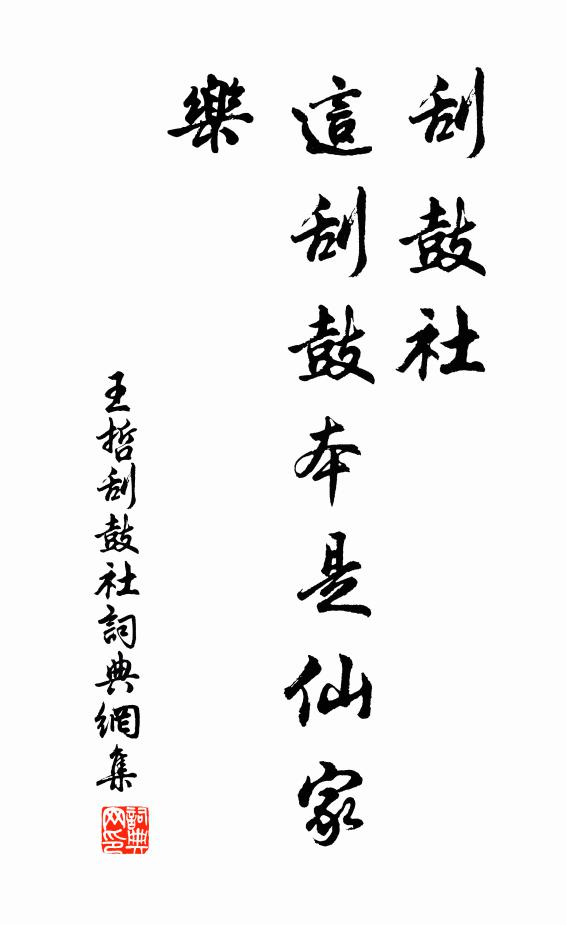 刮鼓社
這刮鼓本是仙家
樂
王哲刮鼓社詞典網集
詞典网印